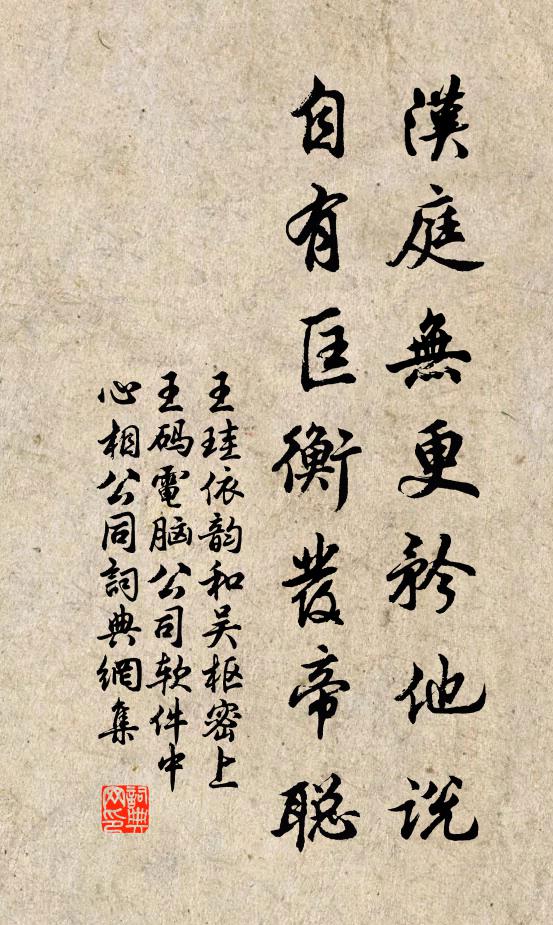 漢庭無更矜他説
自有匡衡發帝聰
王珪依韵和吴枢密上
王码電脑公司软件中
心相公同詞典網集
詞典網印